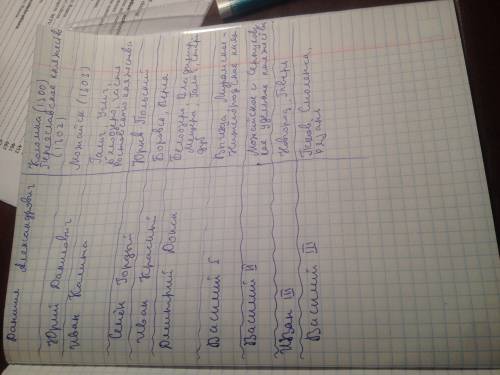 Даниил Александрович
Коломна (1300)
Переславское княжество
(1302)
Юрий Данилович
Можайск (1303)
Иван Калита
Галич, Углич,
Белоозеро, часть
Ростовского княжества
Семён Гордый
Юрьев Польский
Иван Красный
Боровск, Верея
Дмитрий Донск
Белоозеро, Владимир
Мещера, Галич,
Василий I
Вычегда, Муромское
Нижегородское княж
Василий II
Можайское и Серпухов
кое удельные княжества
Иван III
Новгород, Тверь
Василий III
Псков, Смоленск,
Рязань